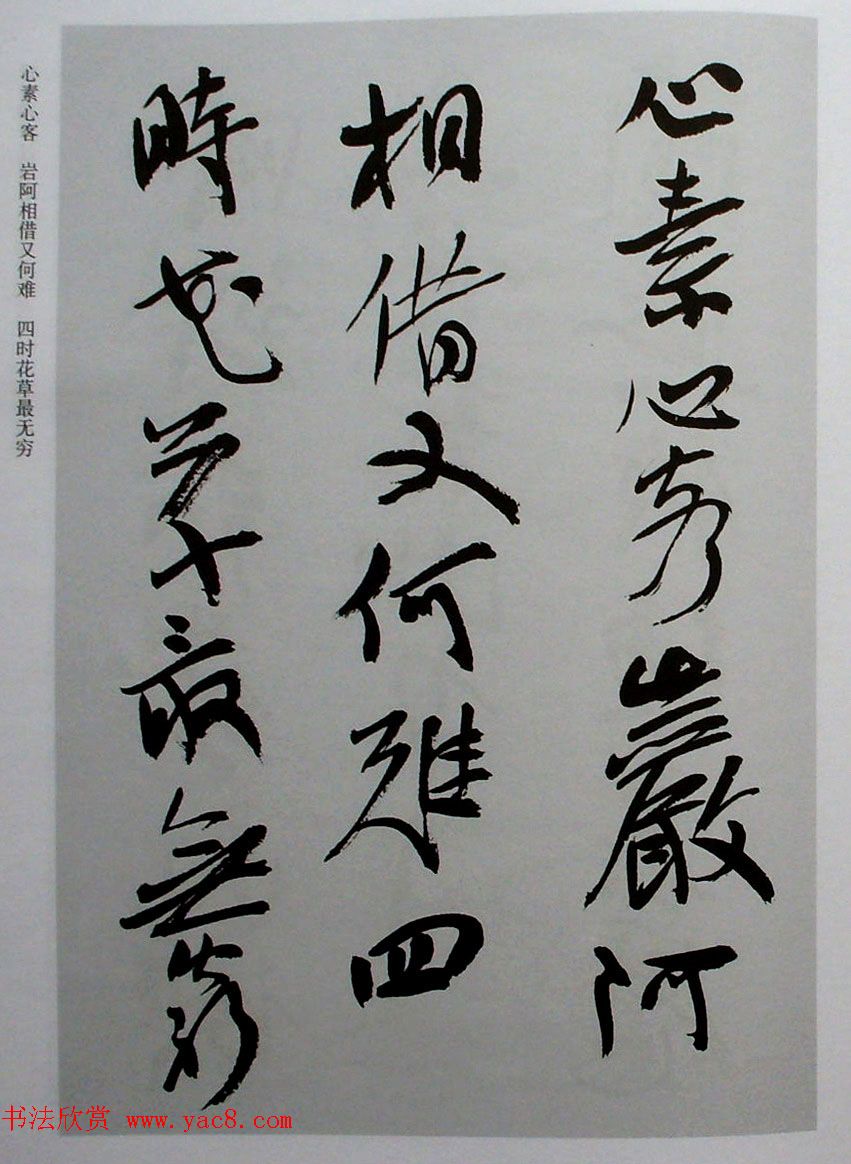 心素心巖阿
相借又何難四
時花草最無窮
心素心客 岩阿相借又何难 四时花草最无穷
书法欣赏 www.yac8.com